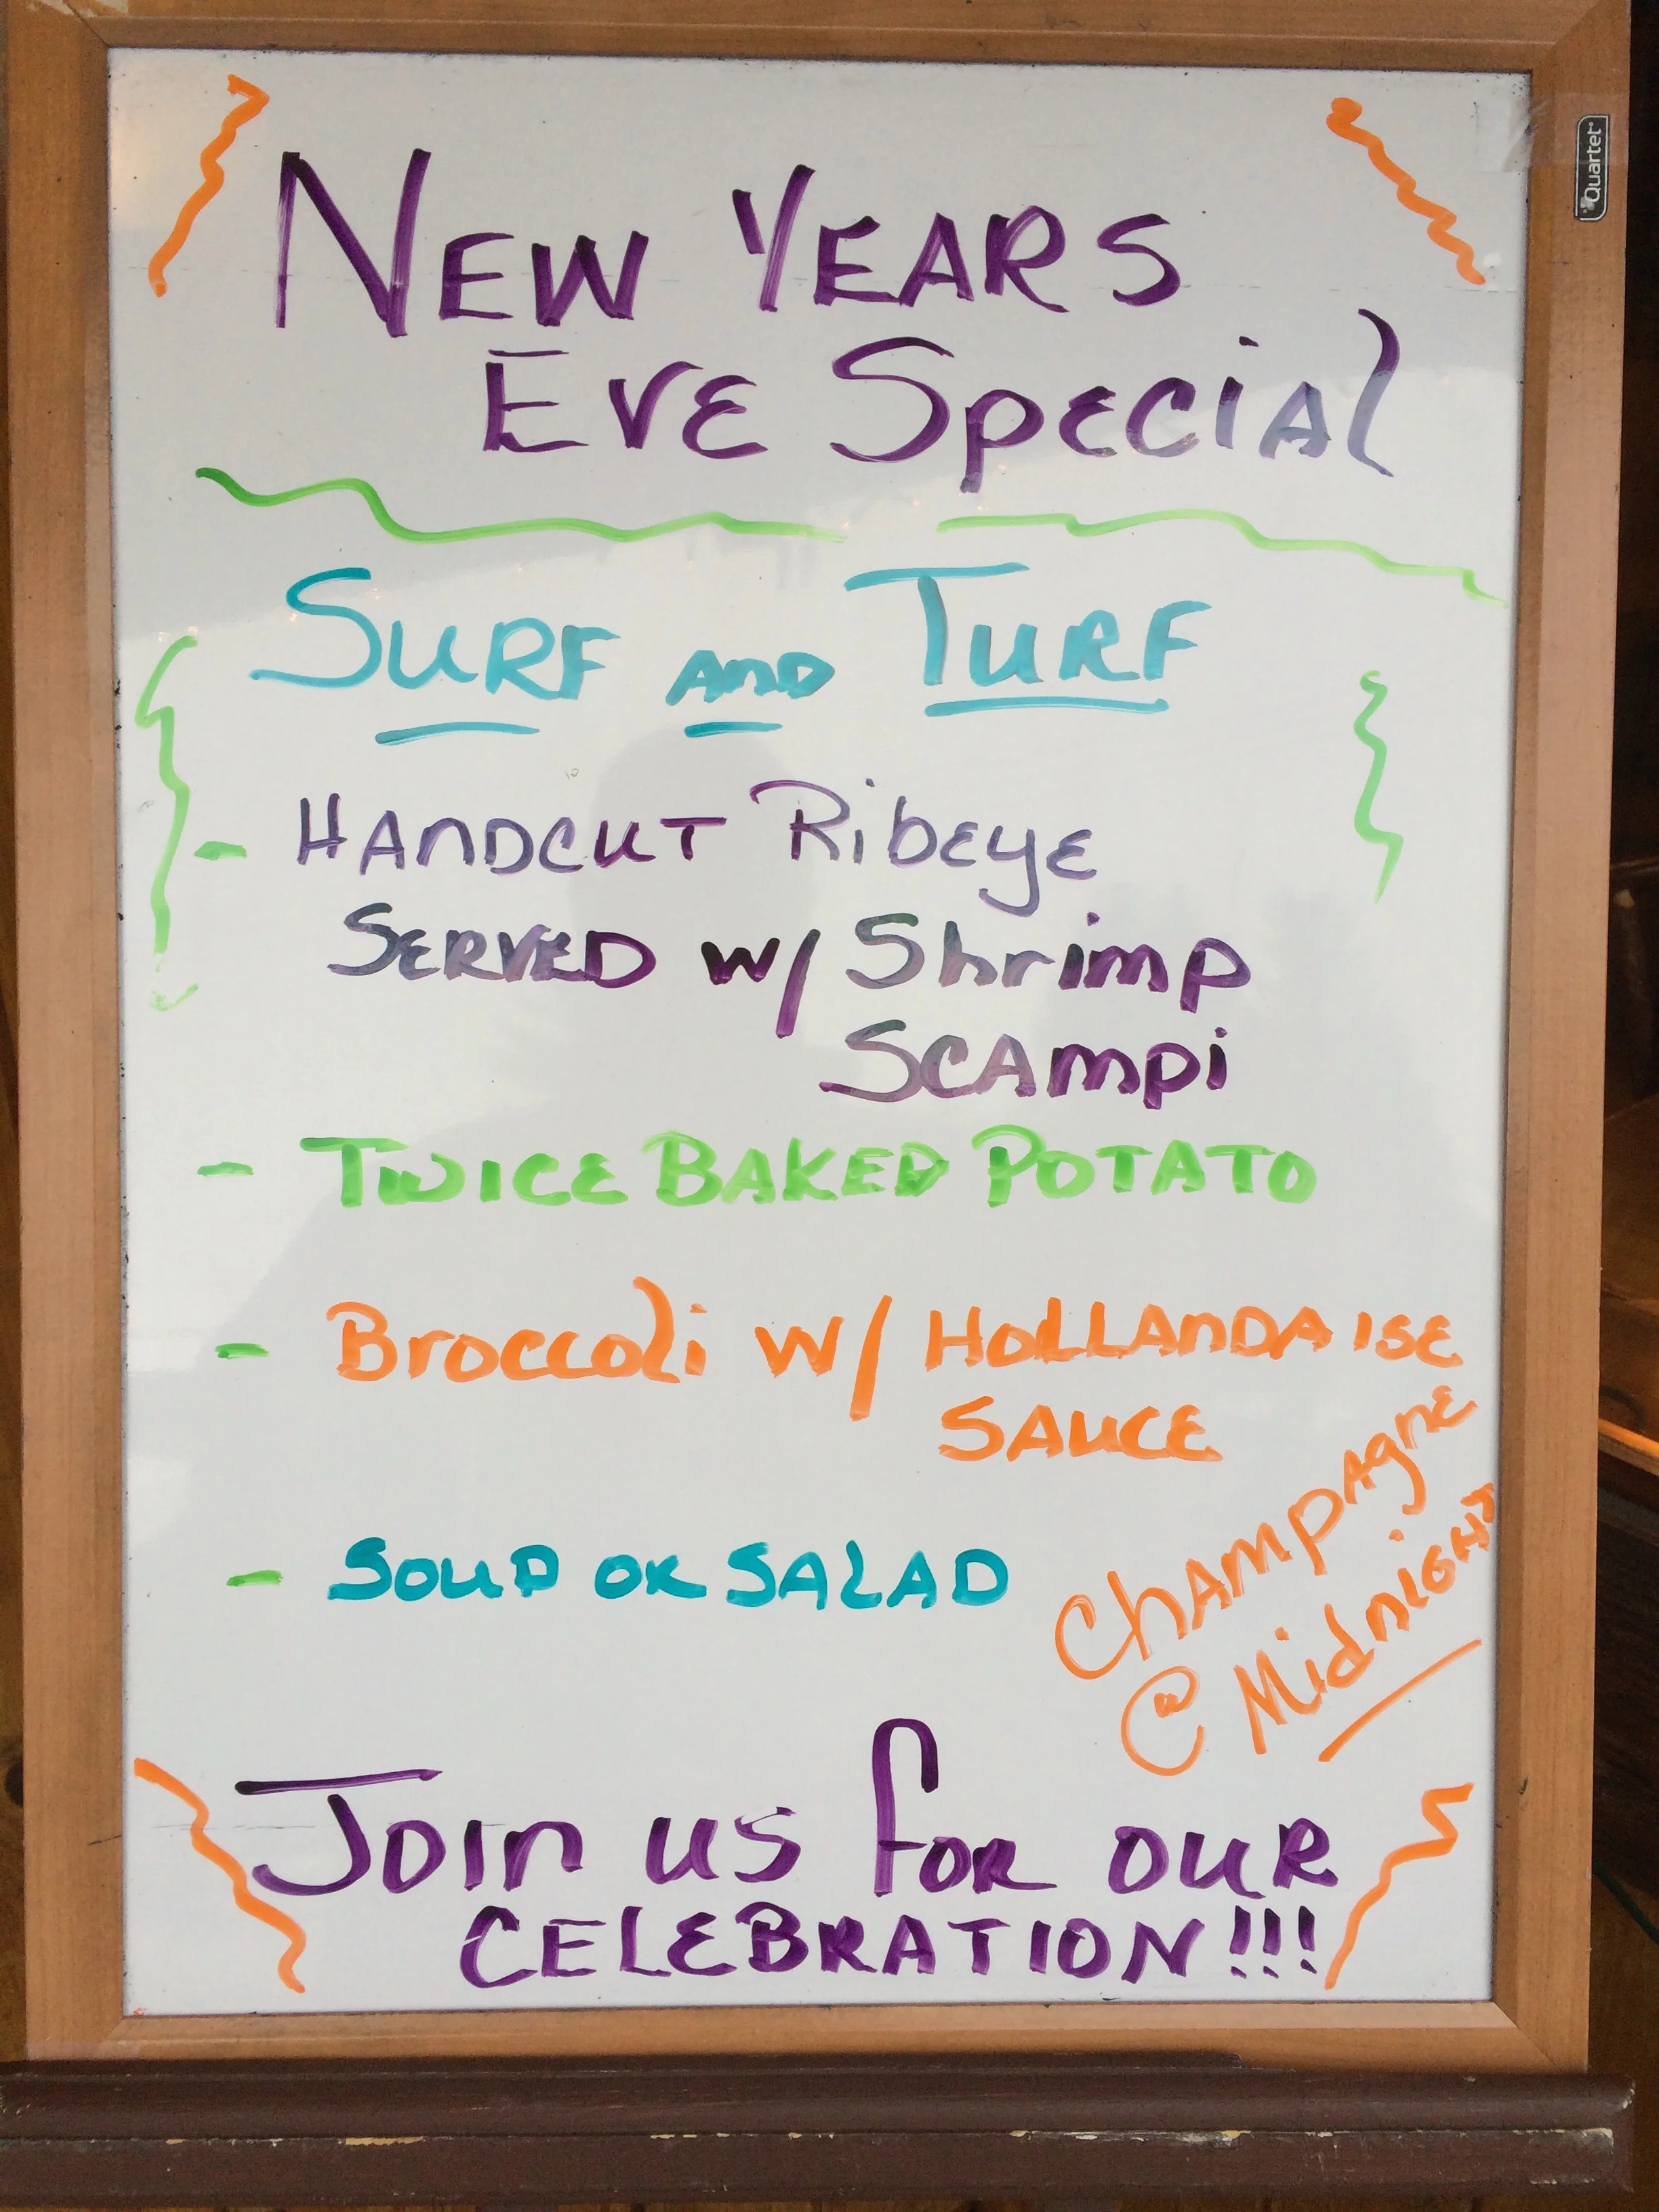 Quartet
NEW YEARS
EVE SpeciAl
SURF AnD TURF
- HAnDCUT RibEyE
SERVED w/ Shrimp
SCAmpi
- TWICE BAKED POTATO
- Broccoli w/ HOLLAnDAISE
SAUCE
- SOUP OR SALAD
ChAmpAgnE
@ MidnIGHT
JOIn us for OUR
CELEBRATION!!!